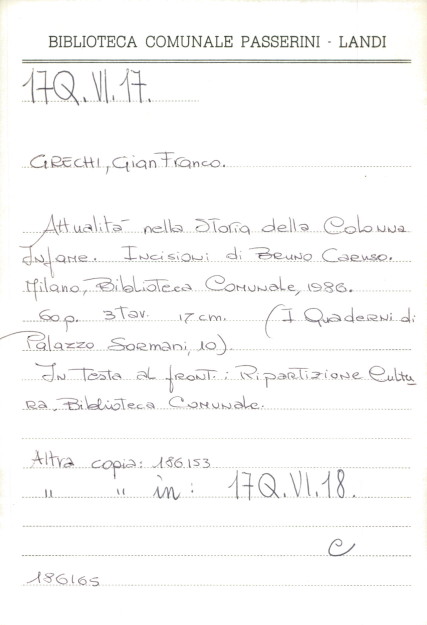 BIBLIOTECA COMUNALE PASSERINI - LANDI
17Q.VI.17.
GRECHI, Gian Franco.
Attualità nella Storia della Colonna
Infame. Incisioni di Bruno Caruso.
Milano, Biblioteca Comunale, 1986.
60 p. 3 tav. 17 cm. (I Quaderni di
Palazzo Sormani, 10).
In testa al front.: Ripartizione Cultu
ra. Biblioteca Comunale.
Altra copia: 186.153
" " in: 17Q.VI.18.
C
186165